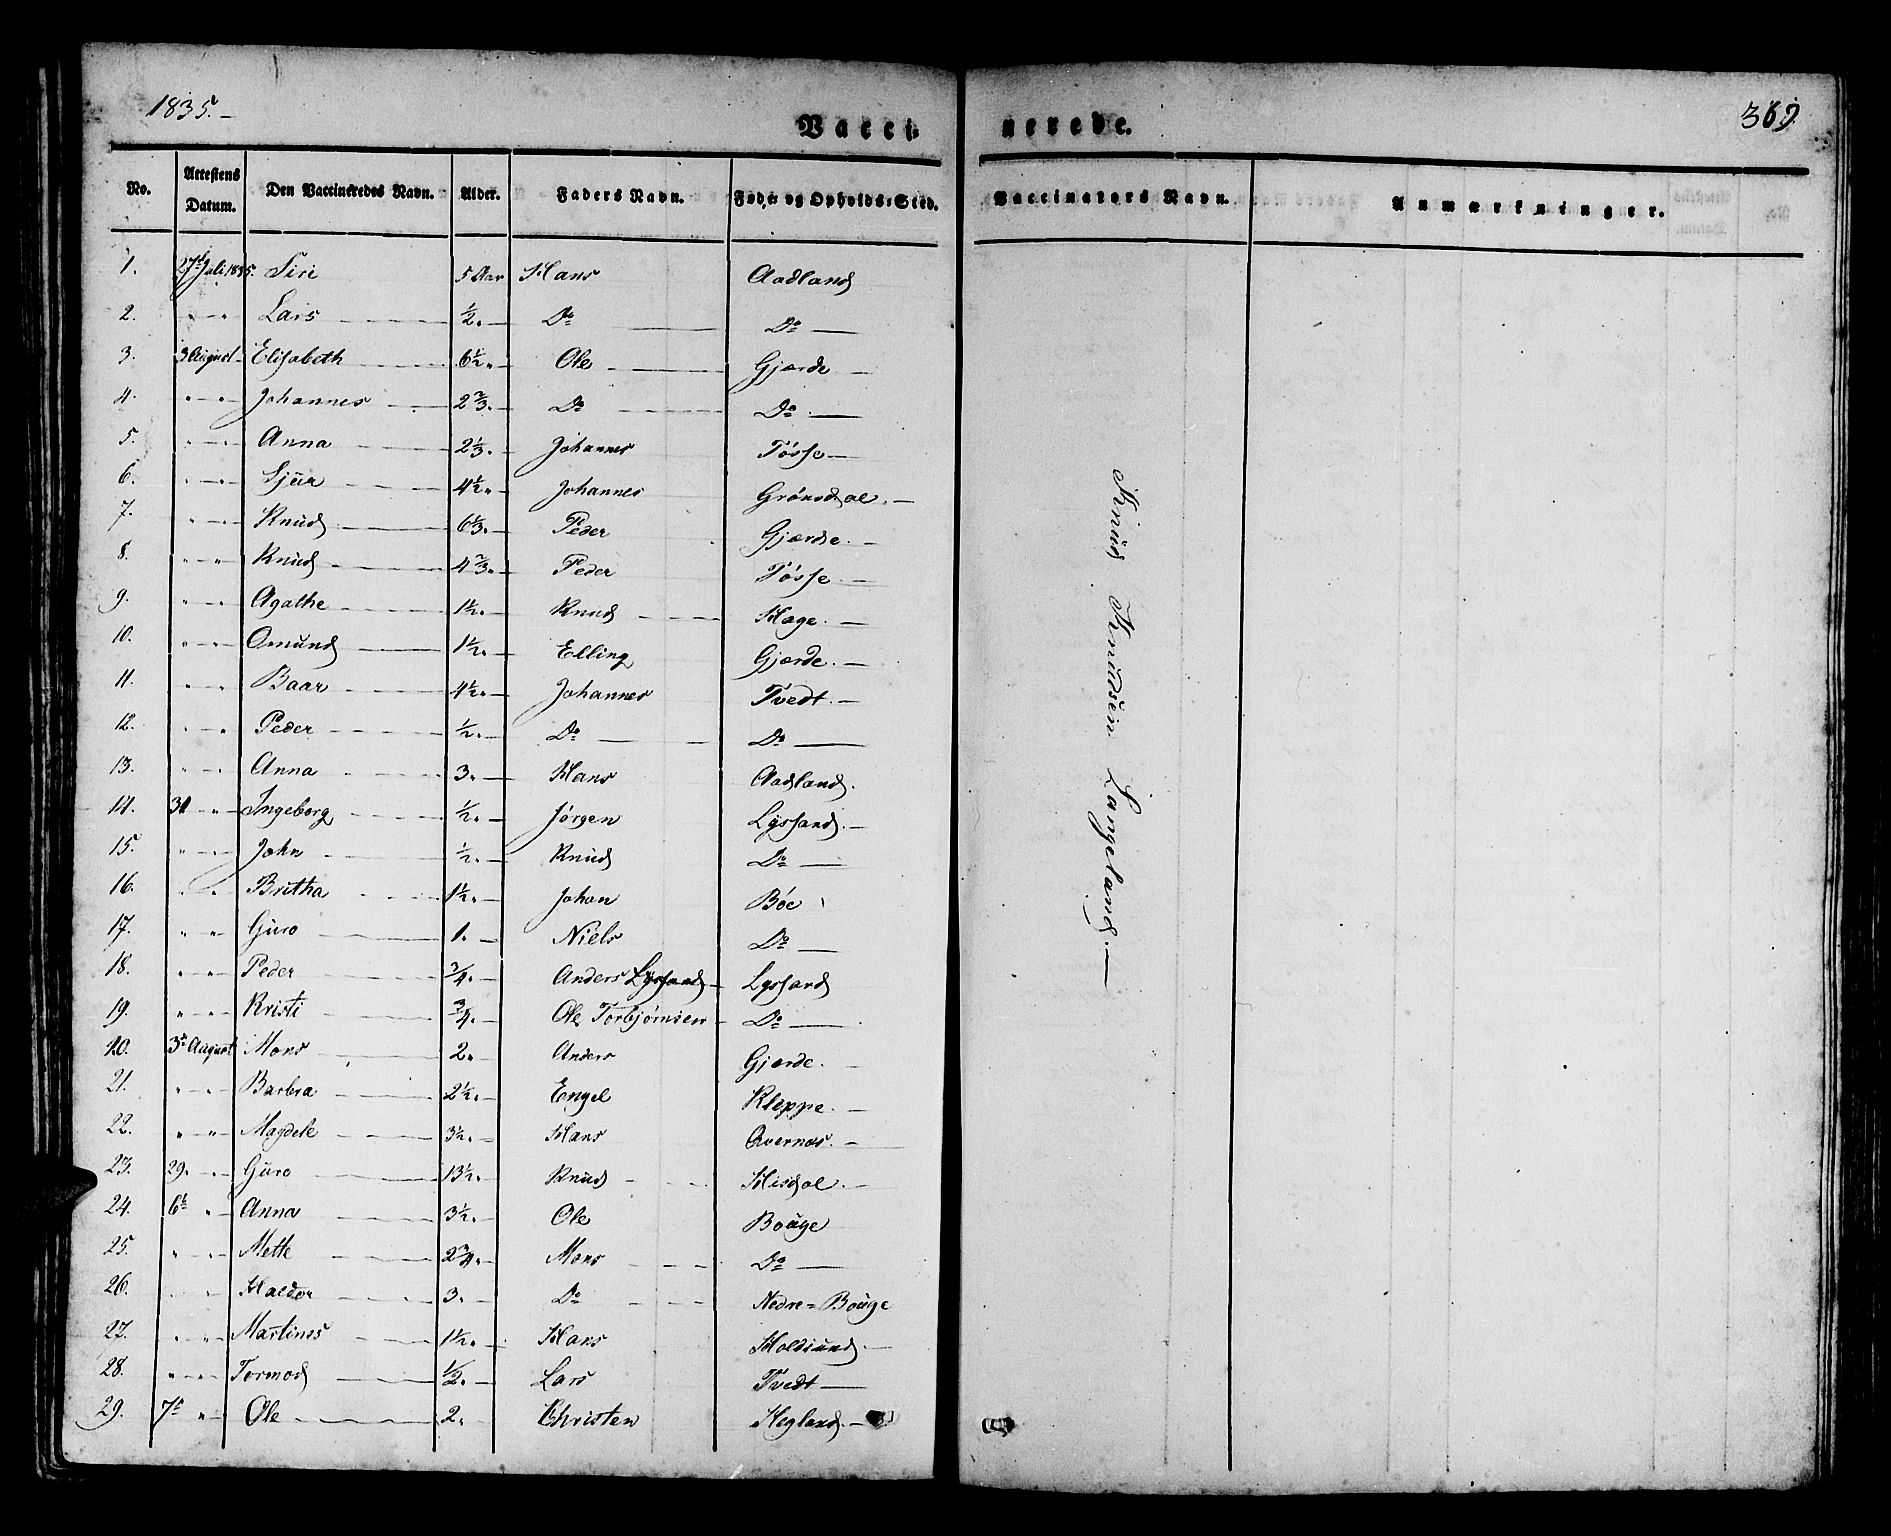 1835.
369
Vaccinerede.
No. Attestens Datum. Den Vaccineredes Navn. Alder. Faders Navn. Føde- og Opholds-Sted. Vaccinators Navn. Anmærkninger.
1. 27d Juli 1835. Siri 5 Aar Hans Aadland
2. " — " Lars — ½ " — Do — Do —
3. 3 August — Elisabeth — 6½ " Ole — Gjærde —
4. " — " Johannes — 2⅔ " — Do — Do —
5. " — " Anna — 2⅓ " — Johannes Tøsse —
6. " — " Sjur — 4½ " — Johannes Grønsdal —
7. " — " Knud — 6⅓ " — Peder Gjærde —
8. " — " Knud — 4⅔ " — Peder Tøsse —
9. " — " Agathe — 1½ " — Knud — Hage —
10. " — " Omund — 1½ " — Elling Gjærde —
11. " — " Baar — 4½ " — Johannes Tvedt —
12. " — " Peder — ½ " — Do — Do —
13. " — " Anna — 3 " — Hans Aadland.
14. 31 " — Ingeborg — ½ " — Jørgen Lyssand —
15. " — " John — ½ " — Knud Do —
16. " " Britha — 1½ " — Johan Bøe
17. " — " Guro — 1 " — Niels Do —
18. " — " Peder — ¾ " — Anders Lyssand — Lyssand
19. " — " Kristi — ¾ " — Ole Torbjørnsen — Do —
20. 3d August Mons — 2 " Anders Gjærde. —
21. " — " Barbra — 2½ " — Engel Kleppe. —
22. " — " Magdele — 3½ " — Hans Avernæs. —
23. 29. — " Guro — 13½ " Knud — Hisdal. —
24. 6te " — Anna — 3½ " — Ole Bouge
25. " — " Mette — 2¾ " — Mons — Do —
26. Haldor — 3 " — Do — Nedre = Bouge
27. " — " Martines — 1½ " — Hans Holdsund —
28. " — " Tormod — ½ " — Lars Tvedt —
29. 7de " — Ole — 2 " Christen Hegland. —
Knud Knudsen Langeland. —